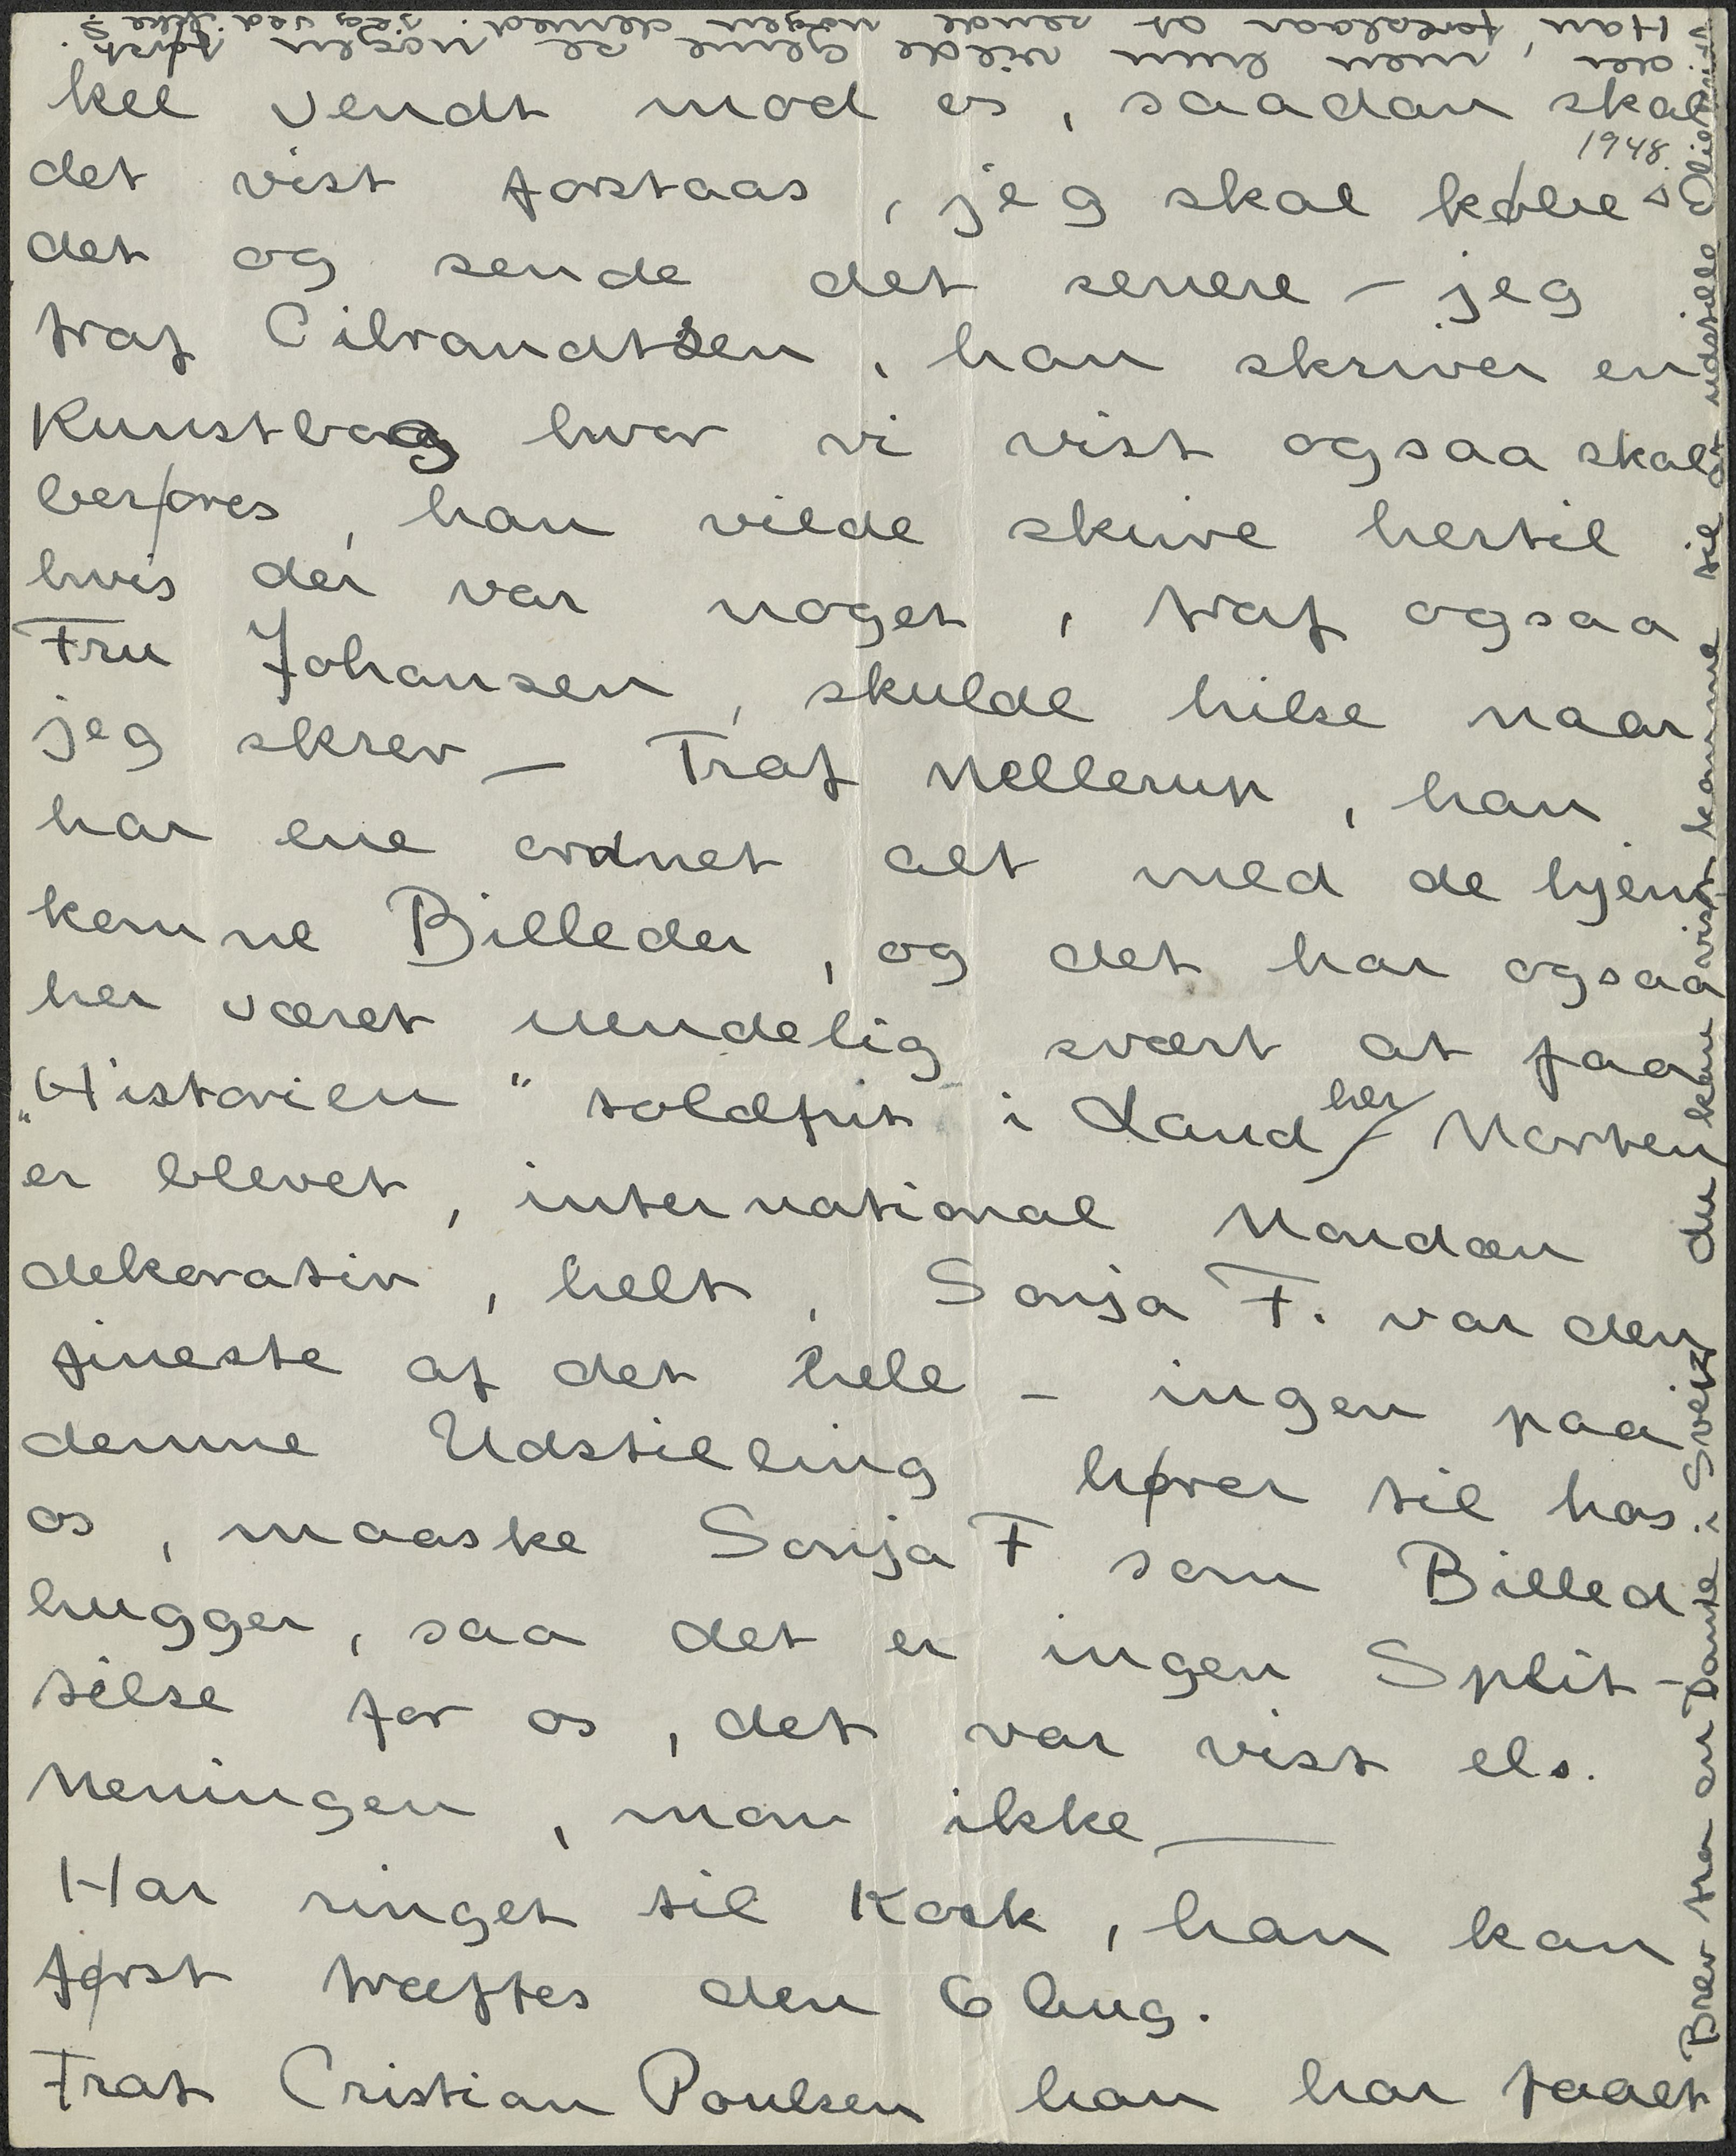 kel vendt mod os, saadan skal
1948.
det vist forstaas, jeg skal købe
det og sende det senere – jeg
traf Cilvandtsen, han skriver en
Kunstbog hvor vi vist ogsaa skal
berøres, han vilde skrive hertil
hvis der var noget, traf ogsaa
Fru Johansen, skulde hilse naar
jeg skrev – Traf Mellerup, han
har ene ordnet alt med de hjem
komne Billeder, og det har ogsaa
her været uendelig svært at faa
„Historien" toldfrit i Land her – Morten
er blevet, international Mondæn
dekorativ, helt, Sonja F. var den
fineste af det hele – ingen paa
denne Udstilling hører til hos
os, maaske Sonja F som Billed
hugger, saa det er ingen Split-
telse for os, det var vist els.
Meningen, mon ikke —
Har ringet til Kosk, han kan
først træffes den 6 Aug.
Traf Cristian Poulsen han har faaet
Brev fra en Dante i Sveiz du kan vist komme til at udstille
der, men hun vilde gerne se nogen først.
Han foreslaar at sende nogen derned. jeg ved ikke?